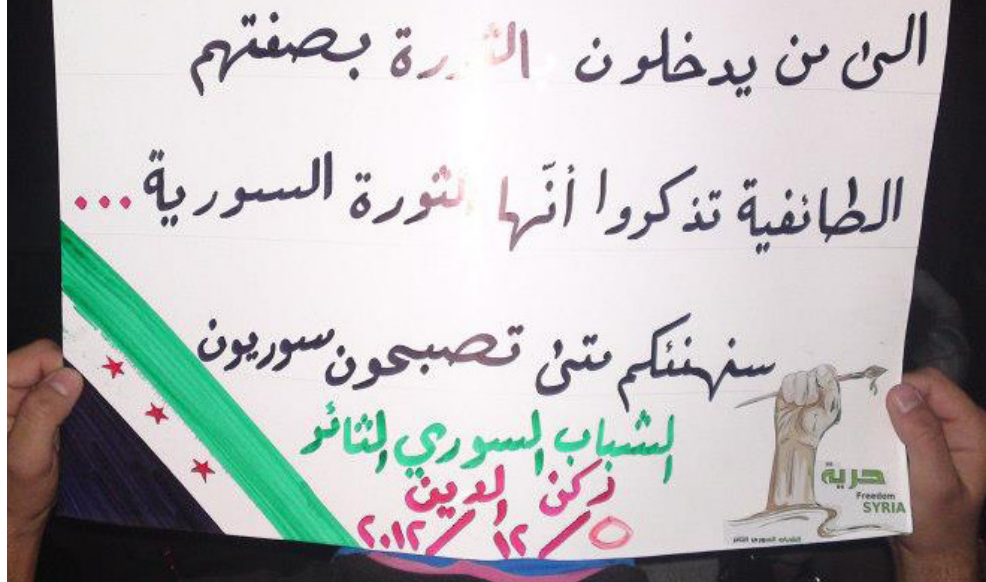 الى من يدخلون بالثورة بصفتهم
الطائفية تذكروا أنّها الثورة السورية ...
سنهنئكم متى تصبحون سوريون
الشباب السوري الثائر
ركن الدين
٥/١٢/٢٠١٢
حرية
Freedom
SYRIA
الشباب السوري الثائر